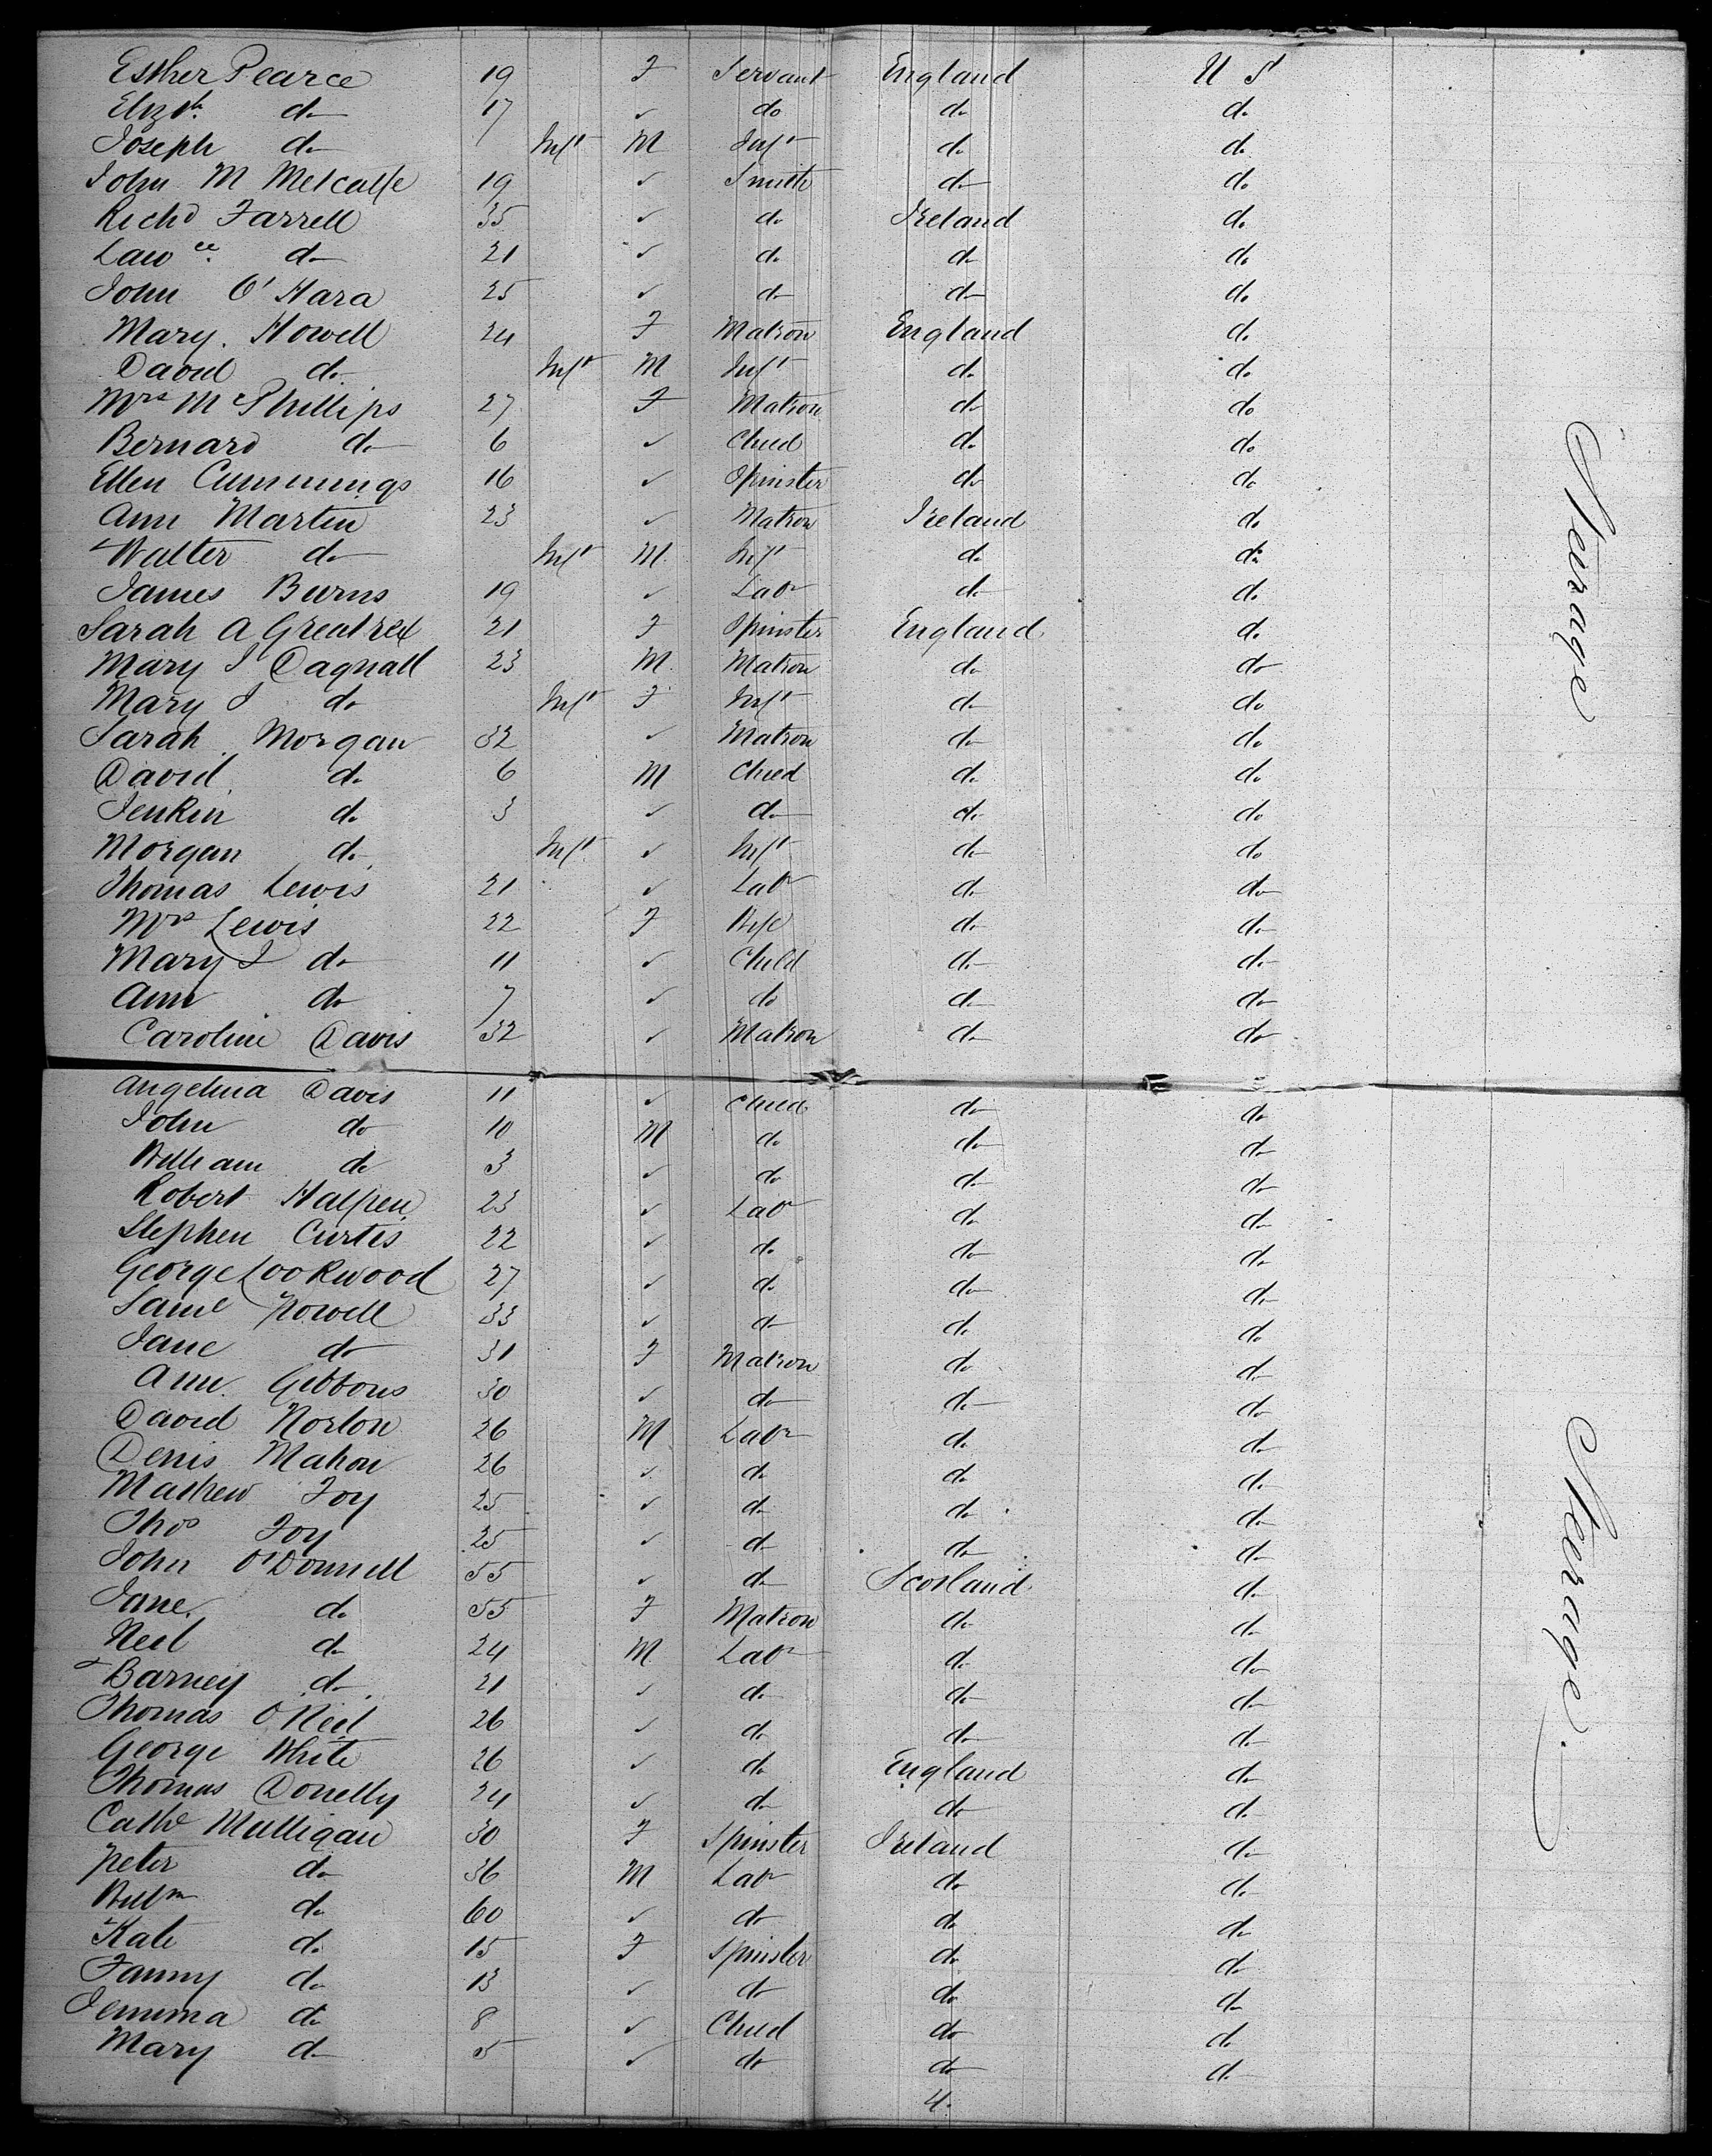 Esther Pearce 19 F Servant England U St
Elizth. do 17 ✓ do do do
Joseph do Inft M Inft do do
John M Metcalfe 19 ✓ Smith do do
Richd Farrell 35 ✓ do Ireland do
Lawce. do 21 ✓ do do do
John O'Hara 25 ✓ do do do
Mary. Howell 24 F Matron England do
David do Inft M Inft do do
Mrs McPhillips 27 F Matron do do
Bernard do 6 ✓ Child do do
Ellen Cummings 16 ✓ Spinster do do
Ann Martin 23 ✓ Matron Ireland do
Walter do Inft M Inft do do
James Burns 19 ✓ Labr do do
Sarah A Greatrex 21 F Spinster England do
Mary J Dagnall 23 M Matron do do
Mary J do Inft F Inft do do
Sarah Morgan 32 ✓ Matron do do
David do 6 M Child do do
Jenkin do 3 ✓ do do do
Morgan do Inft ✓ Inft do do
Thomas Lewis 21 ✓ Labr do do
Mrs Lewis 22 F Wife do do
Mary J do 11 ✓ Child do do
Ann do 7 ✓ do do do
Caroline Davis 32 ✓ Matron do do
Steerage
Angelina Davis 11 ✓ Child do do
John do 10 M do do do
William do 3 ✓ do do do
Robert Halpen 23 ✓ Labr do do
Stephen Curtis 22 ✓ do do do
George Lookwood 27 ✓ do do do
Saml Howell 33 ✓ do do do
Jane do 31 F Matron do do
Ann Gibbons 30 ✓ do do do
David Norton 26 M Labr do do
Denis Mahon 26 ✓ do do do
Mathew Foy 25 ✓ do do do
Thos Foy 25 ✓ do do do
John O'Donnell 55 ✓ do Scotland do
Jane do 55 F Matron do do
Neil do 24 M Labr do do
Barney do 21 ✓ do do do
Thomas O'Neil 26 ✓ do do do
George White 26 ✓ do England do
Thomas Donelly 24 ✓ do do do
Cathe Mulligan 30 F Spinster Ireland do
Peter do 36 M Labr do do
Willm do 60 ✓ do do do
Kate do 15 F Spinster do do
Fanny do 13 ✓ do do do
Jemima do 8 ✓ Child do do
Mary do 5 ✓ do do do
Steerage.
4.